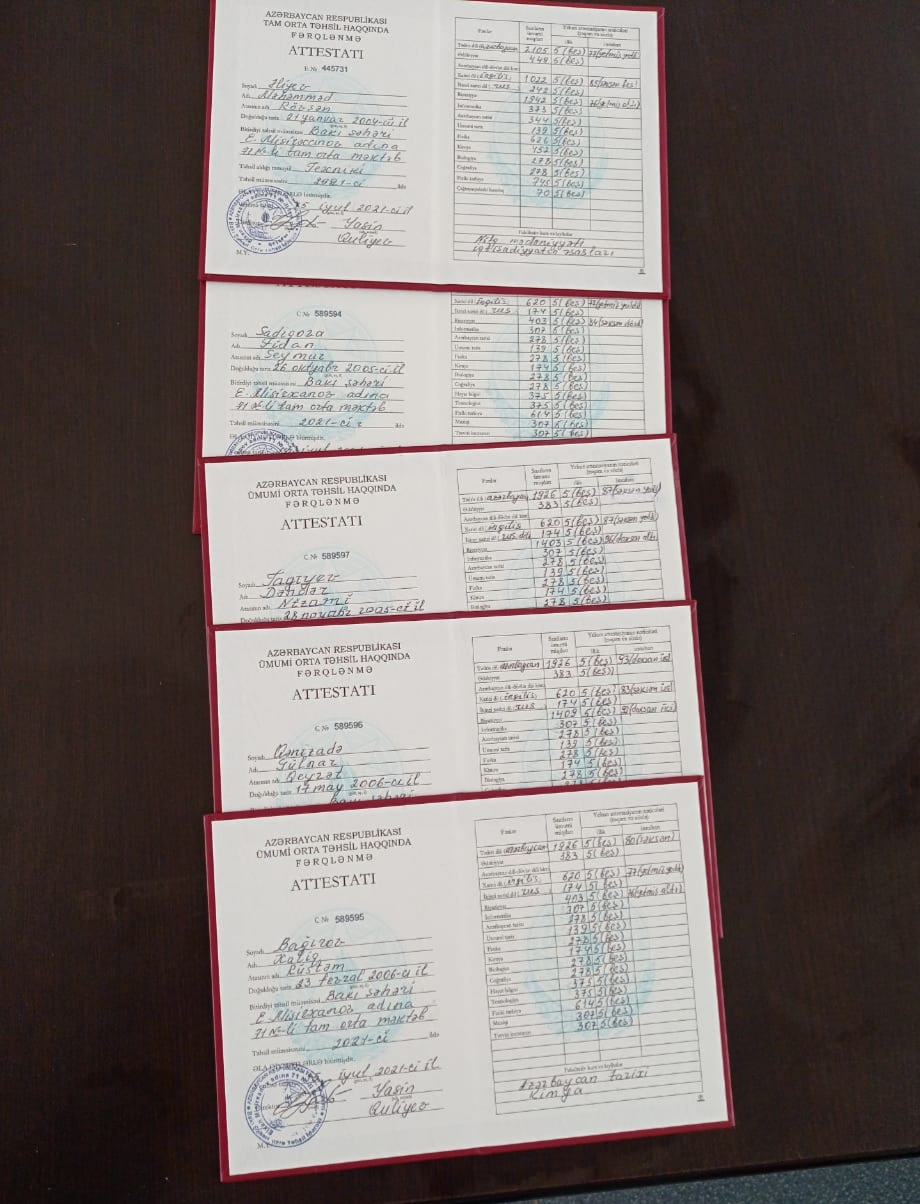 AZƏRBAYCAN RESPUBLİKASI
TAM ORTA TƏHSİL HAQQINDA
FƏRQLƏNMƏ
ATTESTATI
E № 445731
Soyadı Əliyev
Adı Məhəmməd
Atasının adı Rövşən
Doğulduğu tarix 21 yanvar 2004-cü il
Bitirdiyi təhsil müəssisəsi Bakı şəhəri
E. Misirxanov adına
71 №-li tam orta məktəb
Təhsil aldığı təmayül Texniki
2021-ci ildə
iyul 2021-ci il
Yasin
Quliyev
M.Y.
Fənlər
Saatların ümumi miqdarı
Yekun attestasiyanın nəticələri (rəqəm və sözlə)
illik
imtahan
Tədris dili azərbaycan 2105 5(beş)
Ədəbiyyat 449 5(beş)
Xarici dil ingilis 1022 5(beş)
İkinci xarici dil rus 242 5(beş)
Riyaziyyat 1842 5(beş)
İnformatika 373 5(beş)
Azərbaycan tarixi 344 5(beş)
Ümumi tarix 139 5(beş)
Fizika 626 5(beş)
Kimya 452 5(beş)
Biologiya 278 5(beş)
Coğrafiya 278 5(beş)
Fiziki tərbiyə 745 5(beş)
Çağırışaqədərki hazırlıq 70 5(beş)
Fakültativ kurs və layihələr
Nitq mədəniyyəti
iqtisadiyyatın əsasları
C № 589594
Soyadı Sadıqova
Adı Fidan
Atasının adı Seymur
Doğulduğu tarix 26 oktyabr 2005-ci il
Bitirdiyi təhsil müəssisəsi Bakı şəhəri
E. Misirxanov adına
71 №-li tam orta məktəb
2021-ci ildə
Xarici dil ingilis 620 5(beş)
İkinci xarici dil rus 174 5(beş)
Riyaziyyat 1403 5(beş) 84(səksən dörd)
İnformatika 307 5(beş)
Azərbaycan tarixi 278 5(beş)
Ümumi tarix 139 5(beş)
Fizika 278 5(beş)
Kimya 174 5(beş)
Biologiya 278 5(beş)
Coğrafiya 278 5(beş)
Həyat bilgisi 375 5(beş)
Texnologiya 375 5(beş)
Fiziki tərbiyə 614 5(beş)
Musiqi 307 5(beş)
Təsviri incəsənət 307 5(beş)
AZƏRBAYCAN RESPUBLİKASI
ÜMUMİ ORTA TƏHSİL HAQQINDA
FƏRQLƏNMƏ
ATTESTATI
C № 589597
Soyadı Tağıyev
Adı
Atasının adı Nizami
28 noyabr 2005-ci il
Fənlər
Saatların ümumi miqdarı
Yekun attestasiyanın nəticələri (rəqəm və sözlə)
illik
imtahan
Tədris dili azərbaycan 1926 5(beş) 87(səksən yeddi)
Ədəbiyyat 383 5(beş)
Xarici dil ingilis 620 5(beş) 87(səksən yeddi)
İkinci xarici dil rus dili 174 5(beş)
Riyaziyyat 1403 5(beş) 96(doxsan altı)
İnformatika 307 5(beş)
Azərbaycan tarixi 278 5(beş)
Ümumi tarix 139 5(beş)
Fizika 278 5(beş)
Kimya 174 5(beş)
Biologiya 278 5(beş)
AZƏRBAYCAN RESPUBLİKASI
ÜMUMİ ORTA TƏHSİL HAQQINDA
FƏRQLƏNMƏ
ATTESTATI
C № 589596
Soyadı Qənizadə
Adı Gülnar
Atasının adı Qeyrət
Doğulduğu tarix 17 may 2006-cı il
Bakı şəhəri
Fənlər
Saatların ümumi miqdarı
Yekun attestasiyanın nəticələri (rəqəm və sözlə)
illik
imtahan
Tədris dili azərbaycan 1926 5(beş) 93(doxsan üç)
Ədəbiyyat 383 5(beş)
Xarici dil ingilis 620 5(beş) 83(səksən üç)
İkinci xarici dil rus 174 5(beş)
Riyaziyyat 1403 5(beş)
İnformatika 307 5(beş)
Azərbaycan tarixi 278 5(beş)
Ümumi tarix 139 5(beş)
Fizika 278 5(beş)
Kimya 174 5(beş)
Biologiya 278 5(beş)
AZƏRBAYCAN RESPUBLİKASI
ÜMUMİ ORTA TƏHSİL HAQQINDA
FƏRQLƏNMƏ
ATTESTATI
C № 589595
Soyadı Bağırov
Adı Xaliq
Atasının adı Rüstəm
Doğulduğu tarix 23 fevral 2006-cı il
Bitirdiyi təhsil müəssisəsi Bakı şəhəri
E. Misirxanov adına
71 №-li tam orta məktəb
2021-ci ildə
ƏLA QİYMƏTLƏRLƏ bitirmişdir.
iyul 2021-ci il
Direktor Yasin
Quliyev
Fənlər
Saatların ümumi miqdarı
Yekun attestasiyanın nəticələri (rəqəm və sözlə)
illik
imtahan
Tədris dili azərbaycan 1926 5(beş) 80(səksən)
Ədəbiyyat 383 5(beş)
Azərbaycan dili (dövlət dili kimi)
Xarici dil ingilis 620 5(beş) 77(yetmiş yeddi)
İkinci xarici dil rus 174 5(beş)
Riyaziyyat 1403 5(beş) 76(yetmiş altı)
İnformatika 307 5(beş)
Azərbaycan tarixi 278 5(beş)
Ümumi tarix 139 5(beş)
Fizika 278 5(beş)
Kimya 174 5(beş)
Biologiya 278 5(beş)
Coğrafiya 278 5(beş)
Həyat bilgisi 375 5(beş)
Texnologiya 375 5(beş)
Fiziki tərbiyə 614 5(beş)
Musiqi 307 5(beş)
Təsviri incəsənət 307 5(beş)
Fakültativ kurs və layihələr
Azərbaycan tarixi
Kimya